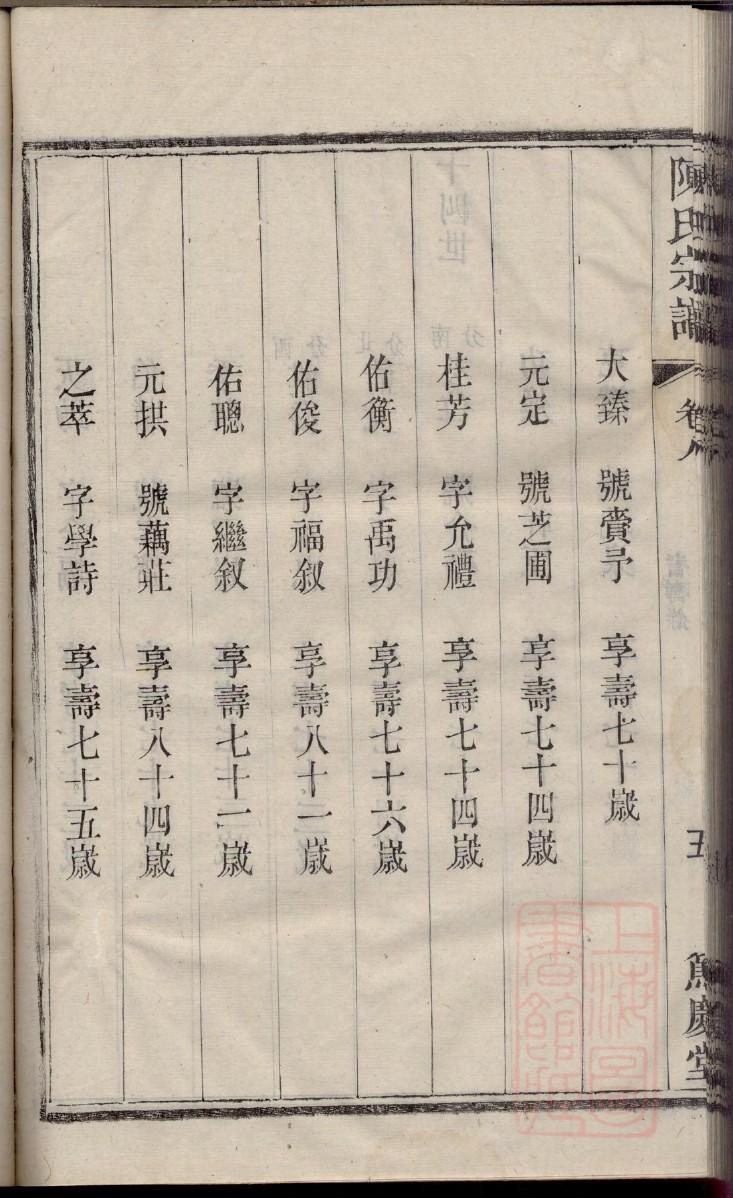 陳氏宗譜 卷八 五 篤慶堂
大臻 號賚予 享壽七十歲
元定 號芝圃 享壽七十四歲
桂芳 字允禮 享壽七十四歲
佑衡 字禹功 享壽七十六歲
佑俊 字福叙 享壽八十一歲
佑聰 字繼叙 享壽七十一歲
元拱 號藕莊 享壽八十四歲
之萃 字學詩 享壽七十五歲
上海圖書館藏